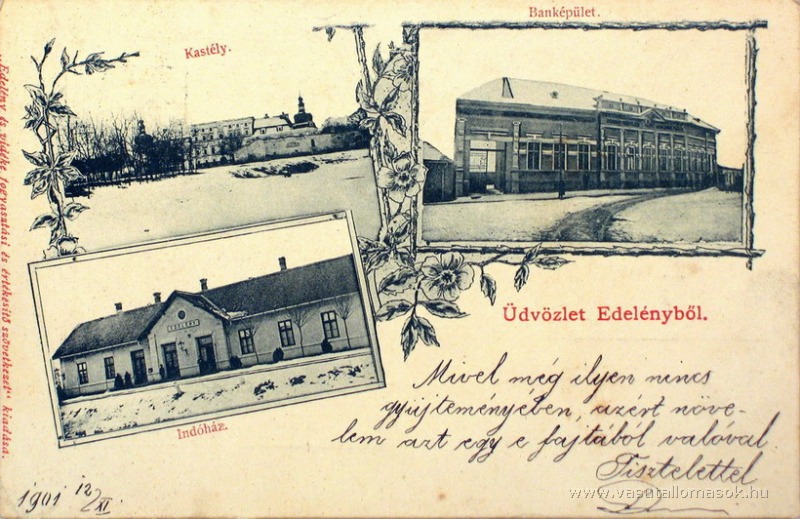 Banképület.
Kastély.
Üdvözlet Edelényből.
Indóház.
"Edelény és vidéke fogyasztási és értékesítő szövetkezet" kiadása.
Mivel még ilyen nincs
gyüjteményében, azért növe-
lem azt egy e fajtából valóval
Tisztelettel
1901 12/XI
www.vasutallomasok.hu